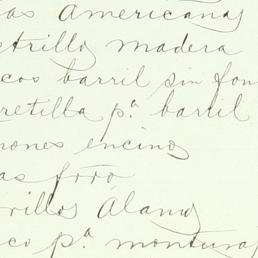 as Americanas
etrillo madera
cos barril sin fon
retilla p.ª barril
ones encino
as foro
rillos Álamo
co p.ª monturas